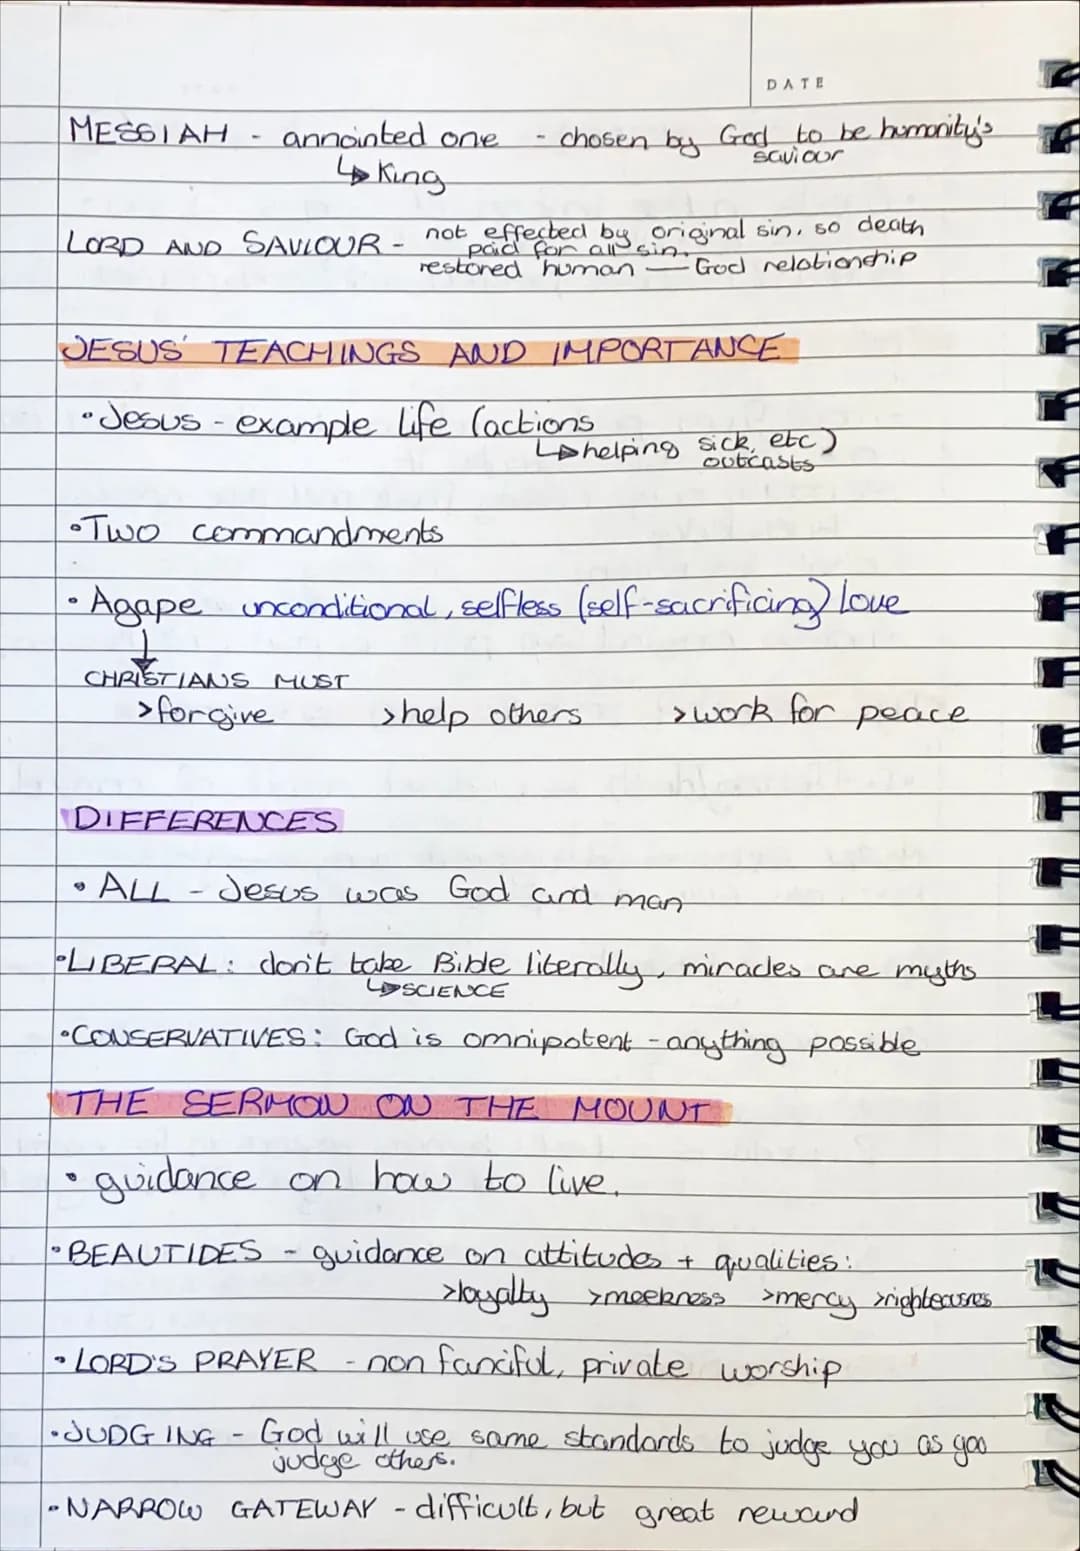 DATE
MESSIAH - annointed one - chosen by God to be humanity's
saviour
↳ King
LORD AND SAVIOUR - not effected by original sin, so death
paid for all sin.
restored human — God relationship
JESUS' TEACHINGS AND IMPORTANCE
• Jesus - example life (actions
↳ helping sick, etc)
outcasts
• Two commandments
• Agape unconditional, selfless (self-sacrificing) love
↓
CHRISTIANS MUST
> forgive > help others > work for peace
DIFFERENCES
• ALL - Jesus was God and man
• LIBERAL: don't take Bible literally, miracles are myths
↳ SCIENCE
• CONSERVATIVES: God is omnipotent - anything possible
THE SERMON ON THE MOUNT
• guidance on how to live.
• BEAUTIDES - guidance on attitudes + qualities:
> loyalty > meekness > mercy > righteousnes
• LORD'S PRAYER - non fanciful, private worship
• JUDGING - God will use same standards to judge you as you
judge others.
• NARROW GATEWAY - difficult, but great reward